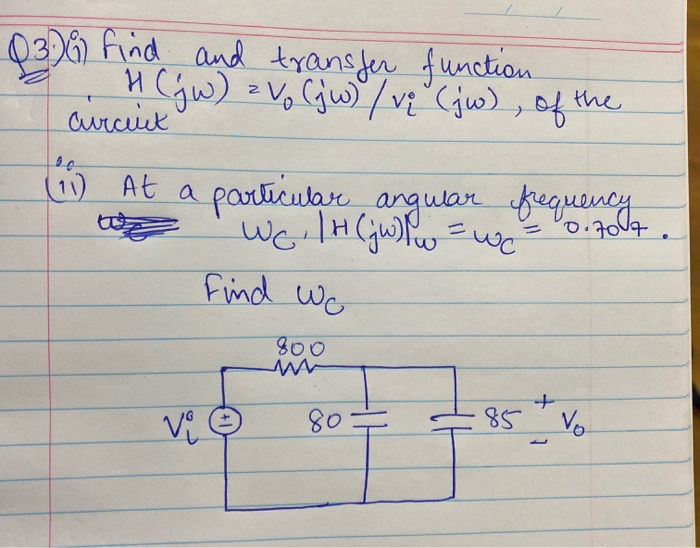 Q3.)(i) Find and transfer function
H(jw) = Vo(jw) / Vi (jw), of the
circuit
(ii) At a particular angular frequency
wc, |H(jw)|w = wc = 0.707.
Find wc
800
Vi ± 80 85 + Vo -